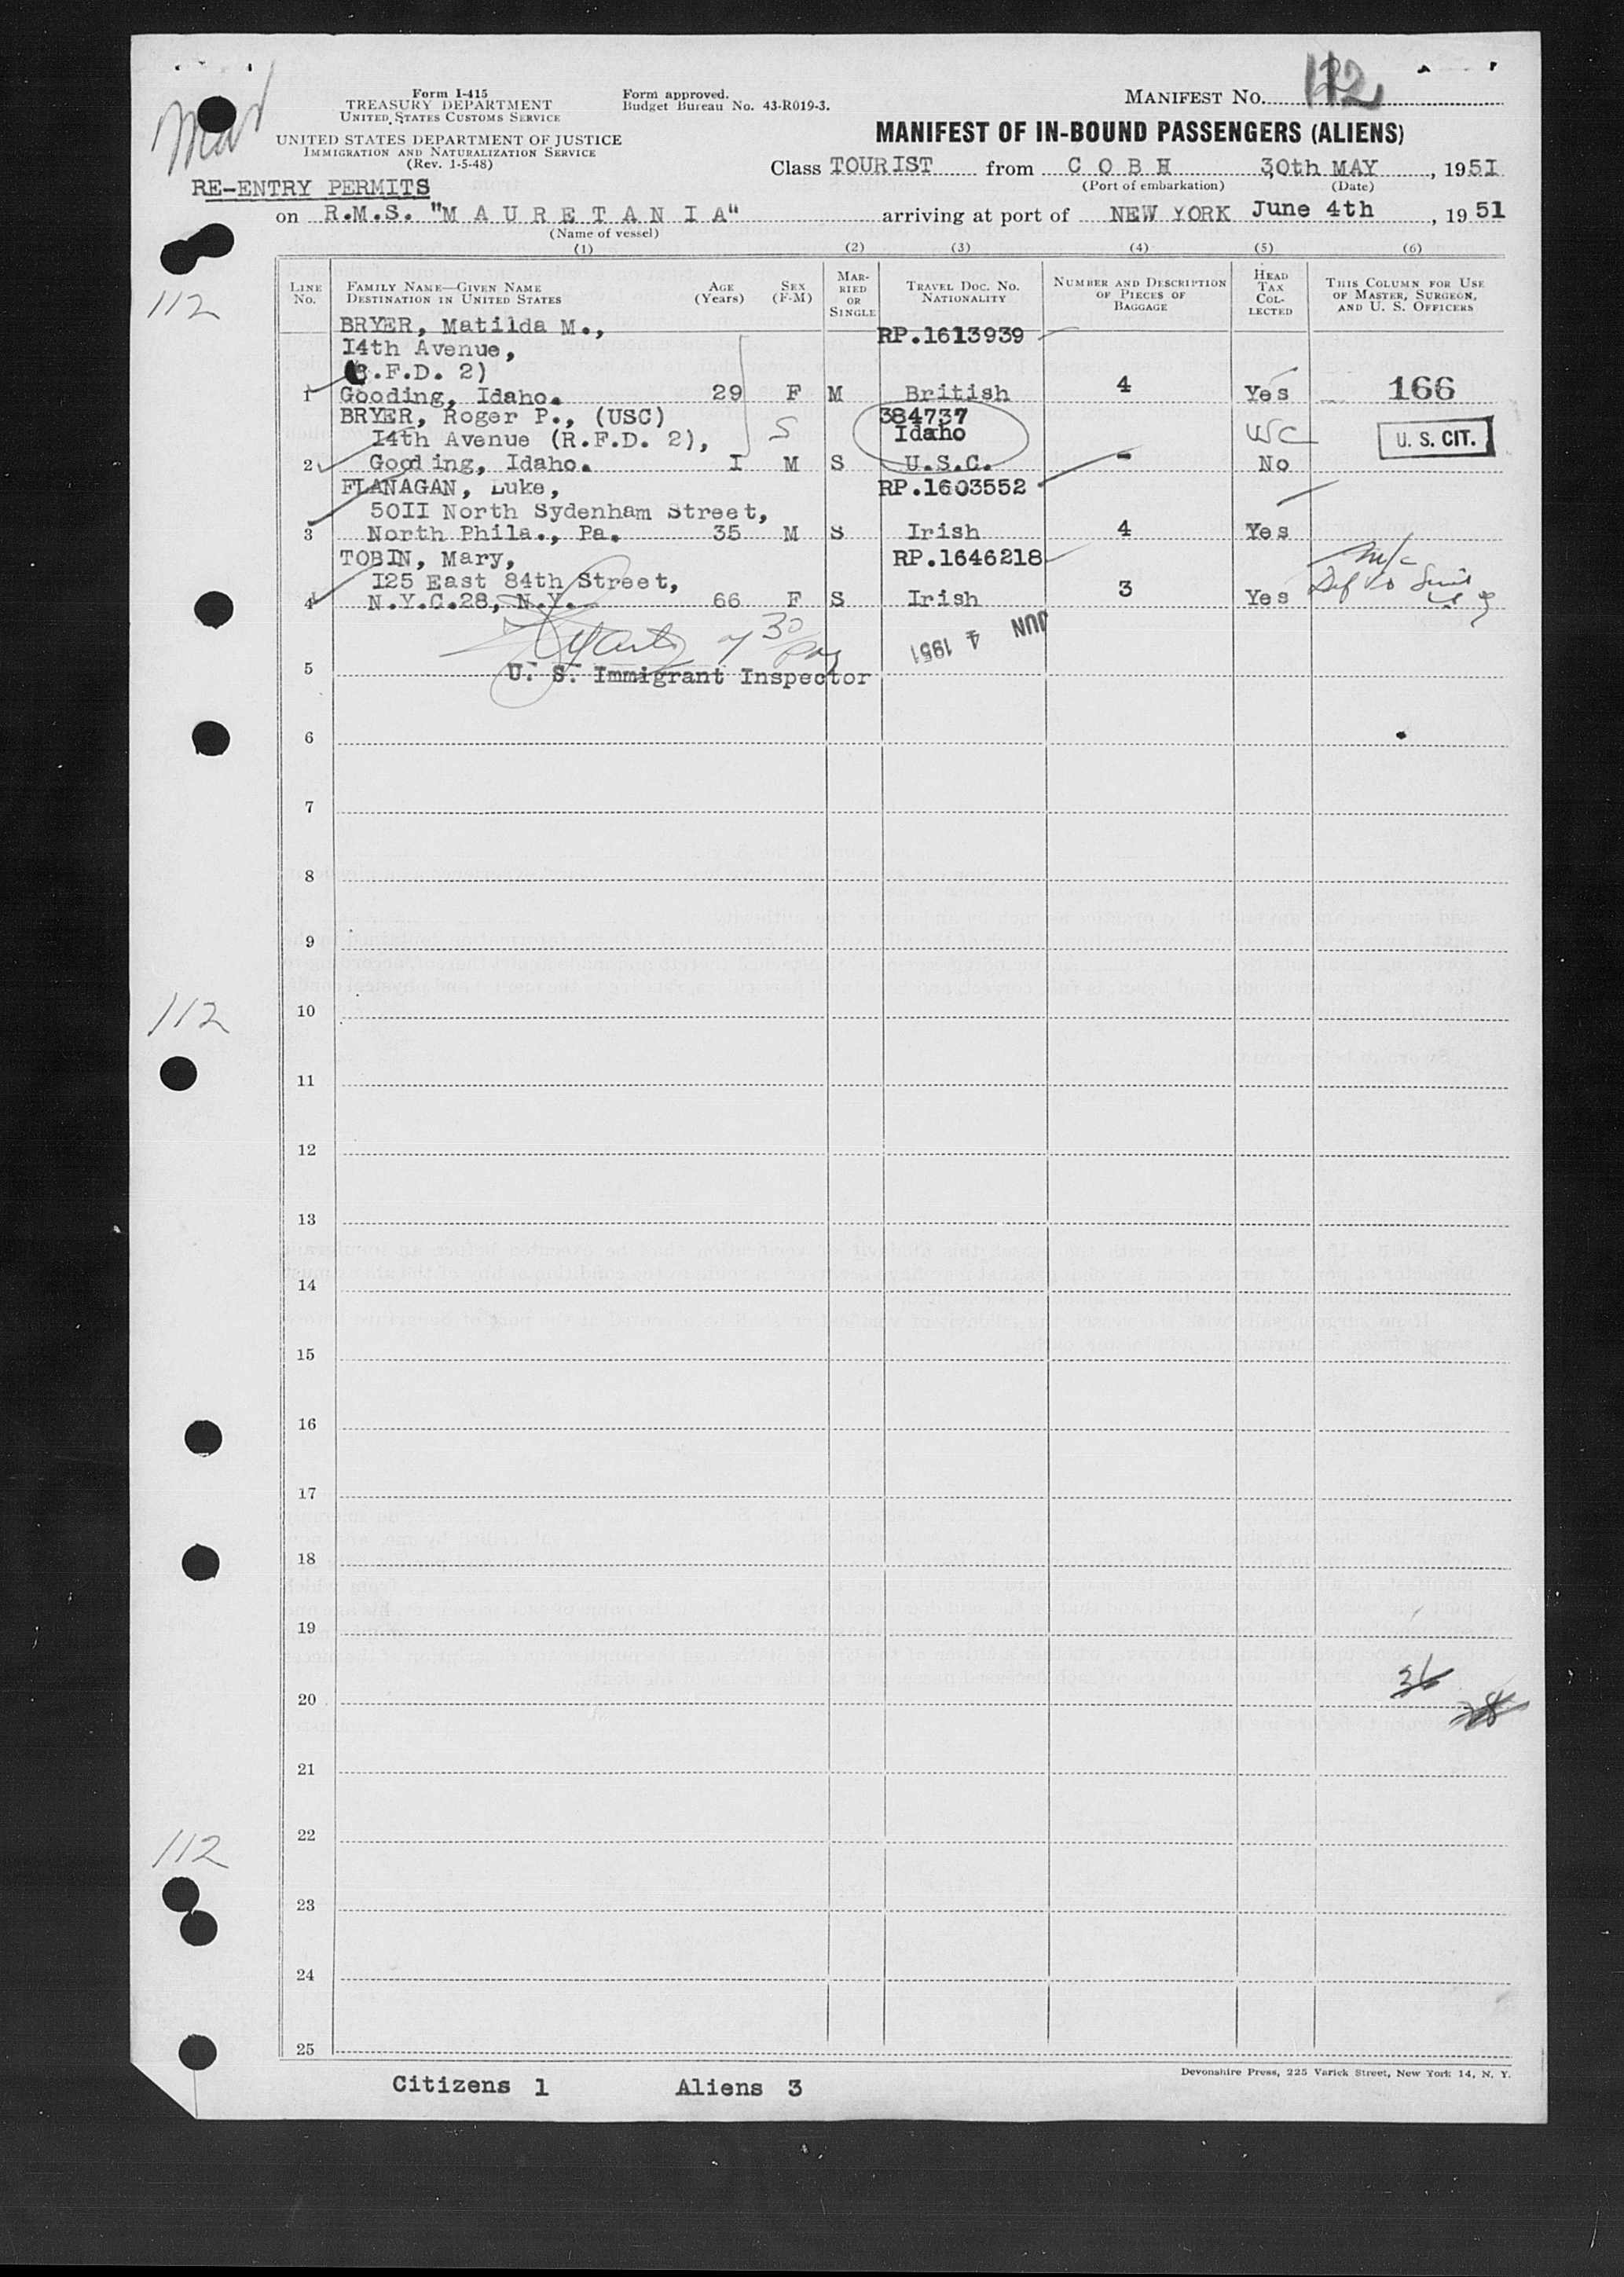 Form I-415
TREASURY DEPARTMENT
UNITED STATES CUSTOMS SERVICE
UNITED STATES DEPARTMENT OF JUSTICE
IMMIGRATION AND NATURALIZATION SERVICE
(Rev. 1-5-48)
Form approved.
Budget Bureau No. 43-R019-3.
MANIFEST NO.
MANIFEST OF IN-BOUND PASSENGERS (ALIENS)
Class TOURIST from C O B H 30th MAY, 195I
(Port of embarkation) (Date)
RE-ENTRY PERMITS
on R.M.S. "M A U R E T A N I A" arriving at port of NEW YORK June 4th, 1951
(Name of vessel)
(1) (2) (3) (4) (5) (6)
LINE NO. FAMILY NAME—GIVEN NAME DESTINATION IN UNITED STATES AGE (Years) SEX (F-M) MARRIED OR SINGLE TRAVEL DOC. NO. NATIONALITY NUMBER AND DESCRIPTION OF PIECES OF BAGGAGE HEAD TAX COLLECTED THIS COLUMN FOR USE OF MASTER, SURGEON, AND U. S. OFFICERS
112
BRYER, Matilda M., RP.1613939
I4th Avenue,
(R.F.D. 2)
1 Gooding, Idaho. 29 F M British 4 Yes 166
BRYER, Roger P., (USC) 384737
I4th Avenue (R.F.D. 2), S Idaho USC U. S. CIT.
2 Gooding, Idaho. I M S U.S.C. - No
FLANAGAN, Luke, RP.1603552
50II North Sydenham Street,
3 North Phila., Pa. 35 M S Irish 4 Yes
TOBIN, Mary, RP.1646218
I25 East 84th Street,
4 N.Y.C.28, N.Y. 66 F S Irish 3 Yes
7 30
JUN 4 1951
5 U. S. Immigrant Inspector
6
7
8
9
112
10
11
12
13
14
15
16
17
18
19
36
20
28
21
112
22
23
24
25
Devonshire Press, 225 Varick Street, New York 14, N. Y.
Citizens 1 Aliens 3